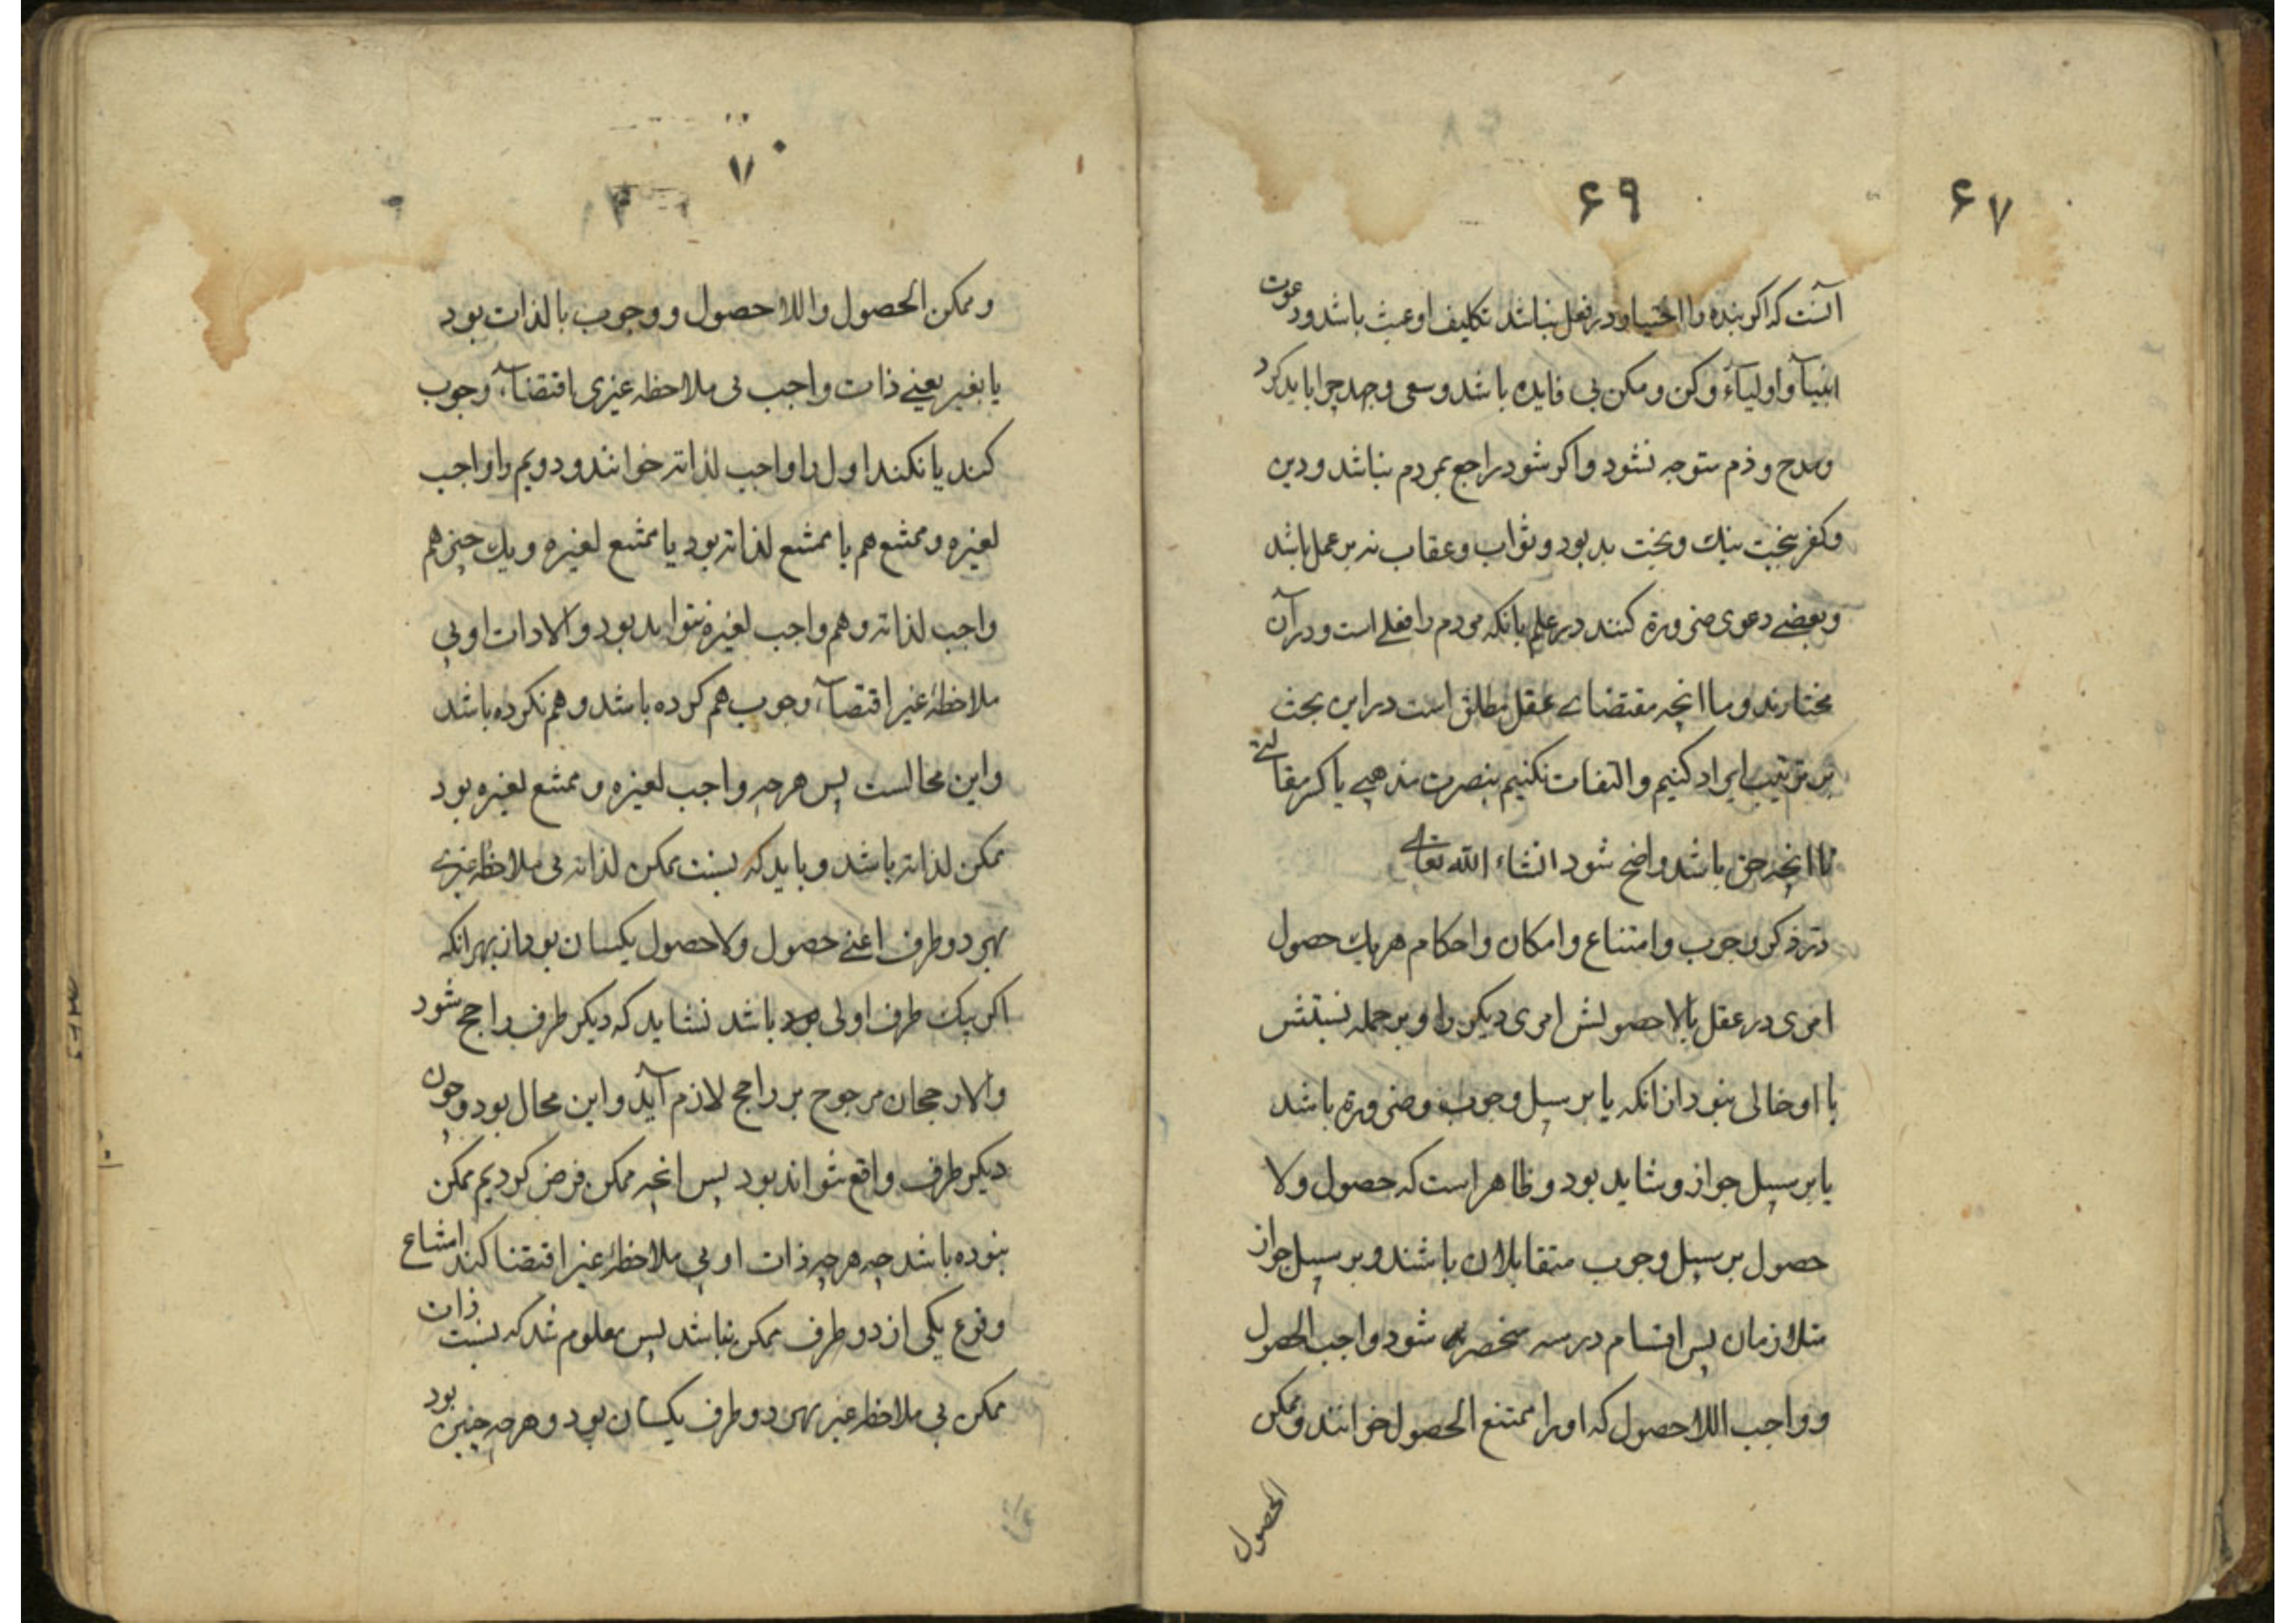 ۶۷
۶۹
آنست که اکر بنده را اختیار در فعل نباشد تکلیف او عبث باشد و دعوت
انبیآ و اولیآء و کن و مکن بی فایده باشد و سعی و جهد چرا باید کرد
و مدح و ذم متوجه نشود و اکر شود راجع بمردم نباشد و دین
و کفر ببخت نیك و بخت بد بود و ثواب و عقاب نه بر عمل باشد
و بعضے دعوی ضرورة کنند در علم بانکه مردم را فعلے است و در آن
مختارند و ما انچه مقتضاے عقل مطلق است در این بحث
بر ترتیب ایراد کنیم و التفات نکنیم بنصرت مذهبے یا کسر مقالتے
تا انچه حق باشد واضح شود انشاء الله تعالے
در ذکر وجوب و امتناع و امکان و احکام هر یك حصول
امری در عقل یا لا حصولش امری دیکر را و بر جمله نسبتش
با او خالی نبود از انکه یا بر سپیل وجوب و ضرورة باشد
یا بر سپیل جواز و شاید بود و ظاهر است که حصول و لا
حصول بر سپیل وجوب متقابلان باشند و بر سپیل جواز
متلازمان پس اقسام در سه منحصر شود واجب الحصول
و واجب اللاحصول که او را ممتنع الحصول خوانند و ممکن
الحصول
۷۰
و ممکن الحصول و اللا حصول و وجوب بالذات بود
یا بغیر یعنے ذات واجب بی ملاحظه غیری یا اقتضاء وجوب
کند یا نکند اول را واجب لذاته خوانند و دویم را واجب
لغیره و ممتنع هم یا ممتنع لذاته بود یا ممتنع لغیره و یك چیز هم
واجب لذاته و هم واجب لغیره نتواند بود و الا ذات او بی
ملاحظهٔ غیر اقتضاء وجوب هم کرده باشد و هم نکرده باشد
و این محالست پس هر چه واجب لغیره و ممتنع لغیره بود
ممکن لذاته باشد و باید که نسبت ممکن لذاته بی ملاحظه غیرے
بهر دو طرف اعنے حصول و لا حصول یکسان بود از بهر انکه
اکر یك طرف اولی باشد نشاید که دیکر طرف راجح شود
و الا رجحان مرجوح بر راجح لازم آید و این محال بود و چون
دیکر طرف واقع نتواند بود پس انچه ممکن فرض کردیم ممکن
نبوده باشد چه هر چه ذات او بی ملاحظهٔ غیر اقتضا کند امتناع
وقوع یکی از دو طرف ممکن نباشد پس معلوم شد که نسبت ذات
ممکن بی ملاحظه غیر بهر دو طرف یکسان بود و هر چه چنین بود